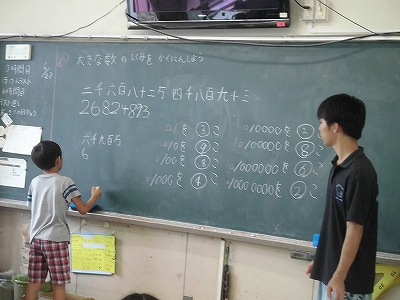 大きな数のしくみをかくにんしよう
二千六百八十二万 四千八百九十三
26824893
六千九百万
6
○1を③こ
○10を⑨こ
○100を⑧こ
○1000を④こ
○10000を②こ
○100000を⑧こ
○1000000を⑥こ
○10000000を②こ